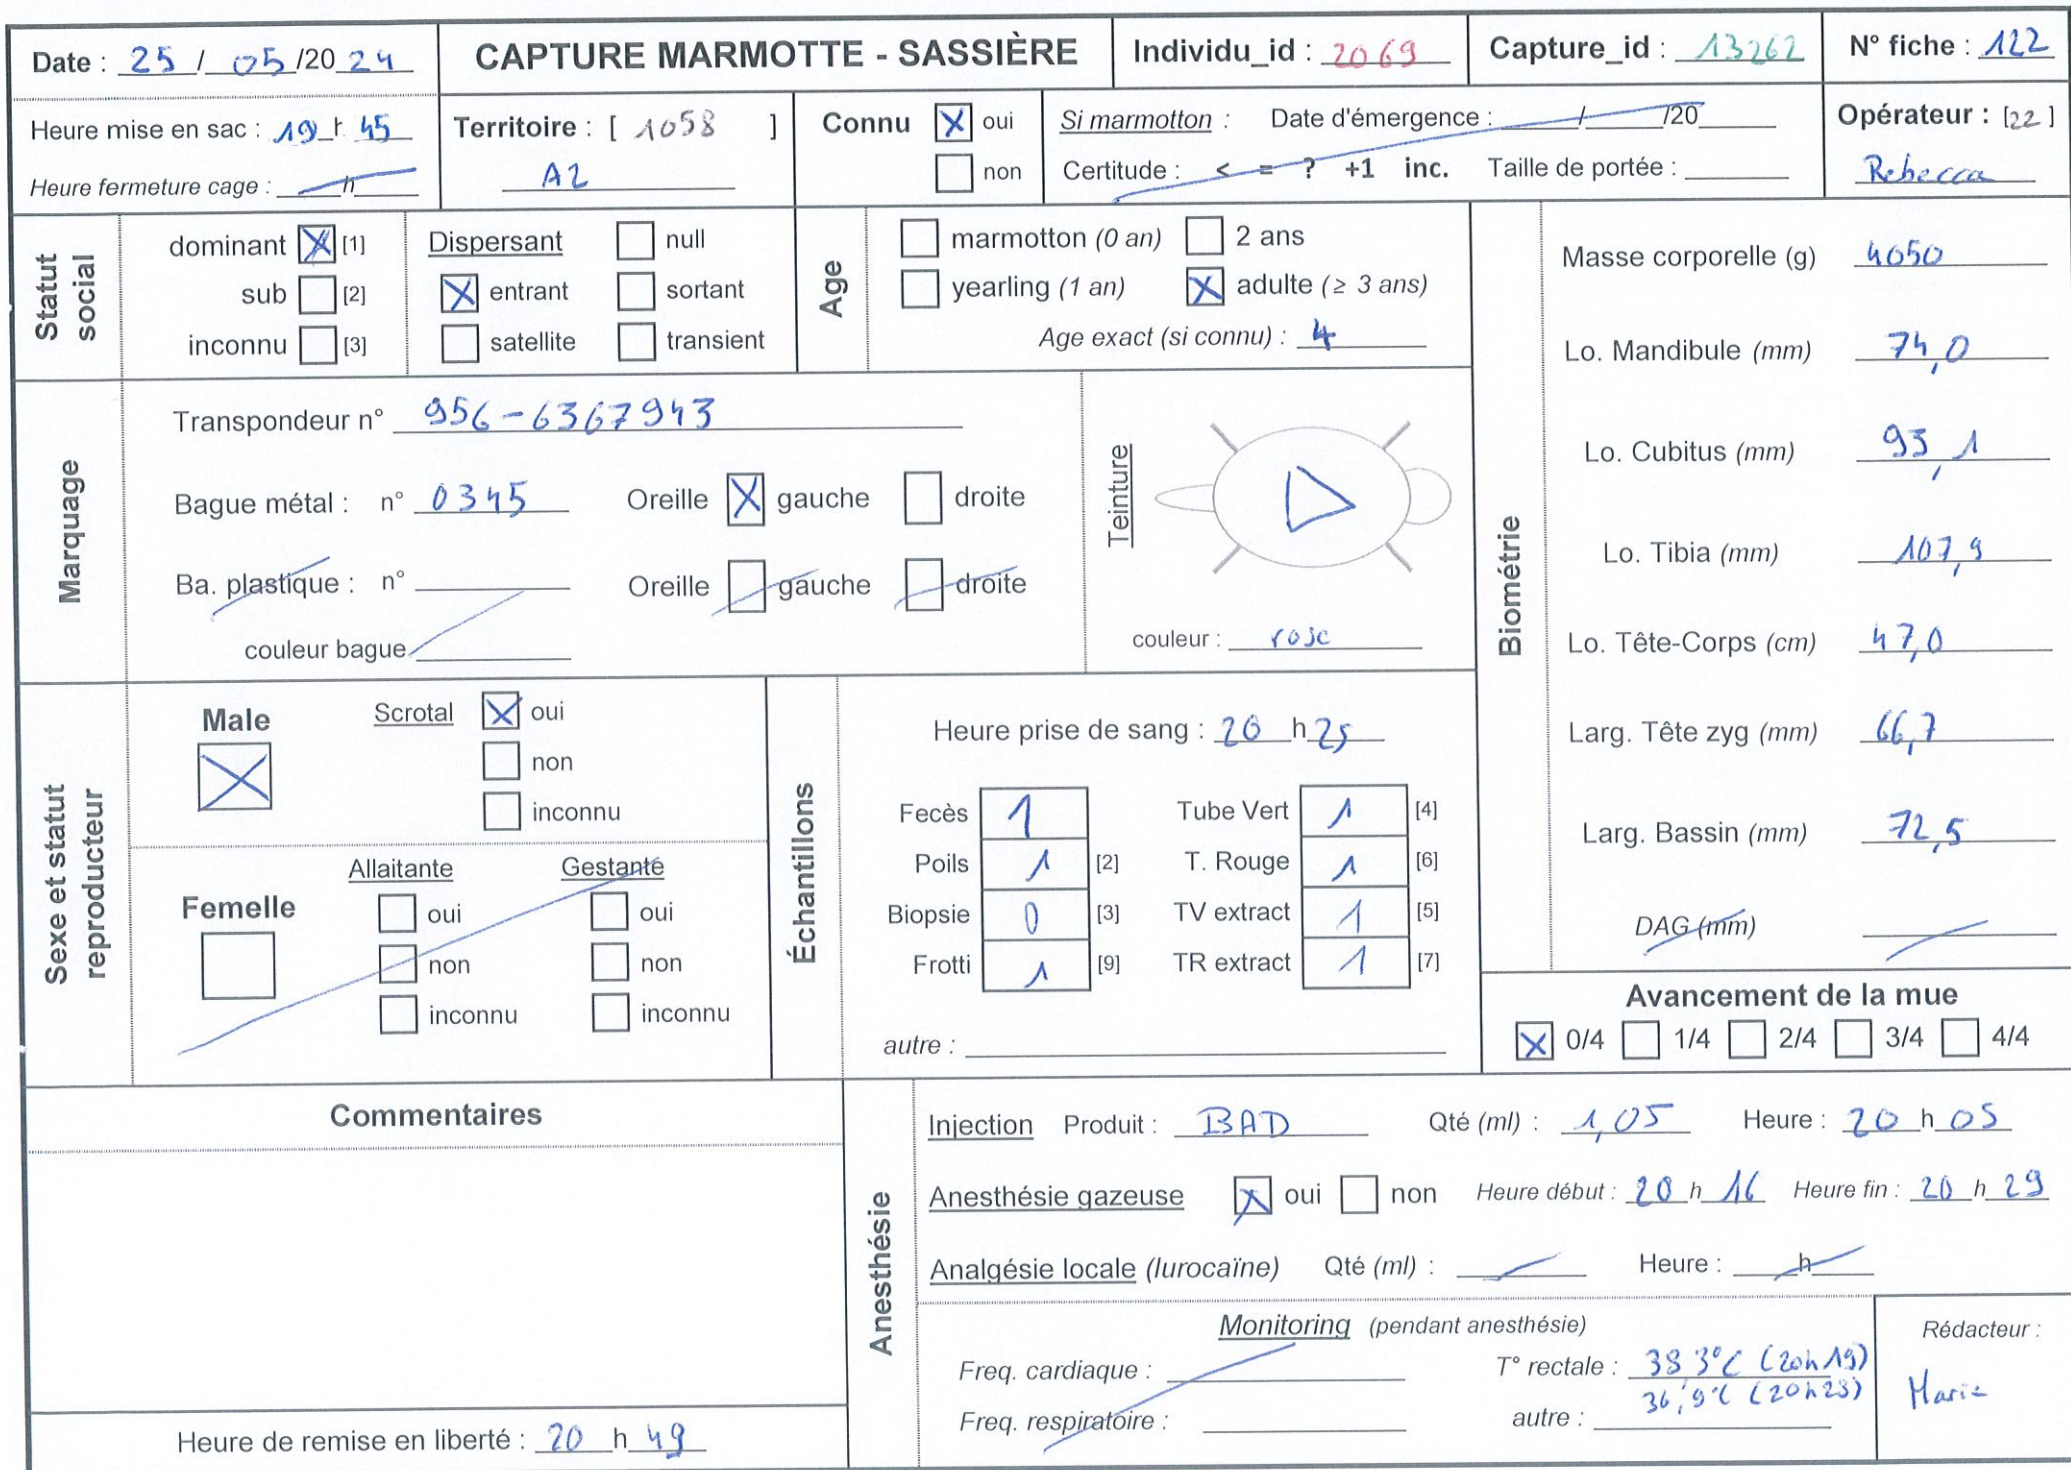 Date : 25 / 05 /20 24
CAPTURE MARMOTTE - SASSIÈRE
Individu_id : 2069
Capture_id : 13262
N° fiche : 122
Heure mise en sac : 19 h 45
Heure fermeture cage : ____h____
Territoire : [ 1058 ]
A2
Connu
oui
non
Si marmotton : Date d'émergence : ____/____/20____
Certitude : < = ? +1 inc. Taille de portée :
Opérateur : [22]
Rebecca
Statut social
dominant [1]
sub [2]
inconnu [3]
Dispersant
null
entrant
sortant
satellite
transient
Age
marmotton (0 an)
2 ans
yearling (1 an)
adulte (≥ 3 ans)
Age exact (si connu) : 4
Marquage
Transpondeur n° 956-6367943
Bague métal : n° 0345 Oreille gauche droite
Ba. plastique : n° Oreille gauche droite
couleur bague
Teinture
couleur : rose
Biométrie
Masse corporelle (g) 4050
Lo. Mandibule (mm) 74,0
Lo. Cubitus (mm) 93,1
Lo. Tibia (mm) 107,9
Lo. Tête-Corps (cm) 47,0
Larg. Tête zyg (mm) 66,7
Larg. Bassin (mm) 72,5
DAG (mm)
Sexe et statut reproducteur
Male
Scrotal
oui
non
inconnu
Femelle
Allaitante
oui
non
inconnu
Gestante
oui
non
inconnu
Échantillons
Heure prise de sang : 20 h 25
Fecès 1
Tube Vert 1 [4]
Poils 1 [2]
T. Rouge 1 [6]
Biopsie 0 [3]
TV extract 1 [5]
Frotti 1 [9]
TR extract 1 [7]
autre :
Avancement de la mue
0/4 1/4 2/4 3/4 4/4
Commentaires
Heure de remise en liberté : 20 h 49
Anesthésie
Injection Produit : BAD Qté (ml) : 1,05 Heure : 20 h 05
Anesthésie gazeuse oui non Heure début : 20 h 16 Heure fin : 20 h 29
Analgésie locale (lurocaïne) Qté (ml) : Heure : ____h____
Monitoring (pendant anesthésie)
Freq. cardiaque :
T° rectale : 38 3°C (20h19)
36,9°C (20h28)
Freq. respiratoire :
autre :
Rédacteur :
Marie